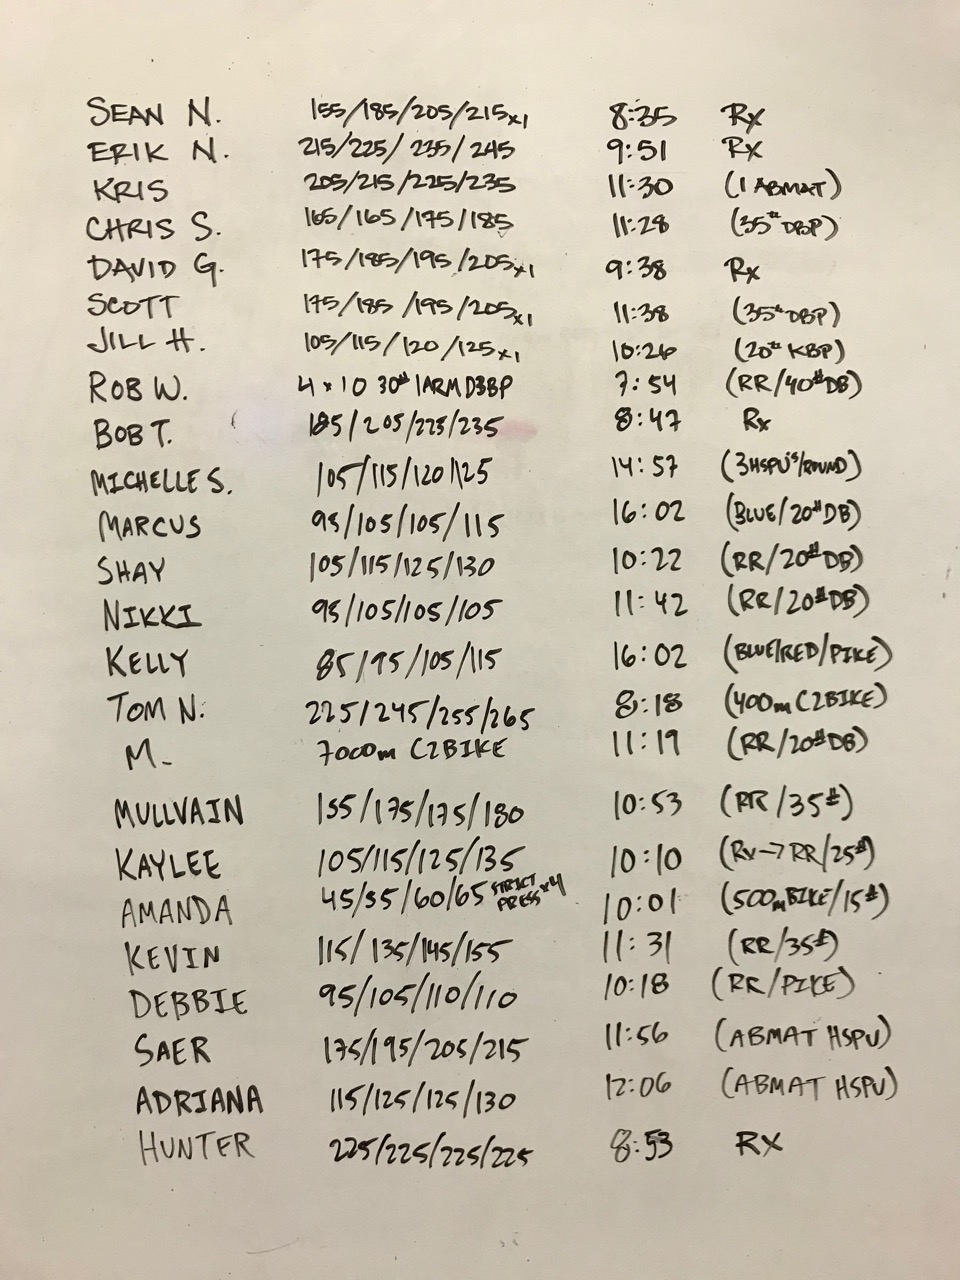 SEAN N. 155/185/205/215x1 8:35 Rx
ERIK N. 215/225/235/245 9:51 Rx
KRIS 205/215/225/235 11:30 (1 ABMAT)
CHRIS S. 165/165/175/185 11:28 (35# DBP)
DAVID G. 175/185/195/205x1 9:38 Rx
SCOTT 175/185/195/205x1 11:38 (35# DBP)
JILL H. 105/115/120/125x1 10:26 (20# KBP)
ROB W. 4x10 30# 1ARM DBBP 7:54 (RR/40#DB)
BOB T. 185/205/225/235 8:47 Rx
MICHELLE S. 105/115/120/125 14:57 (3HSPU's/ROUND)
MARCUS 95/105/105/115 16:02 (BLUE/20#DB)
SHAY 105/115/125/130 10:22 (RR/20#DB)
NIKKI 95/105/105/105 11:42 (RR/20#DB)
KELLY 85/95/105/115 16:02 (BLUE/RED/PIKE)
TOM N. 225/245/255/265 8:18 (400m C2BIKE)
M. 7000m C2BIKE 11:19 (RR/20#DB)
MULLVAIN 155/175/175/180 10:53 (RR/35#)
KAYLEE 105/115/125/135 10:10 (Rx→RR/25#)
AMANDA 45/55/60/65 STRICT PRESS x4 10:01 (500m BIKE/15#)
KEVIN 115/135/145/155 11:31 (RR/35#)
DEBBIE 95/105/110/110 10:18 (RR/PIKE)
SAER 175/195/205/215 11:56 (ABMAT HSPU)
ADRIANA 115/125/125/130 12:06 (ABMAT HSPU)
HUNTER 225/225/225/225 8:53 RX